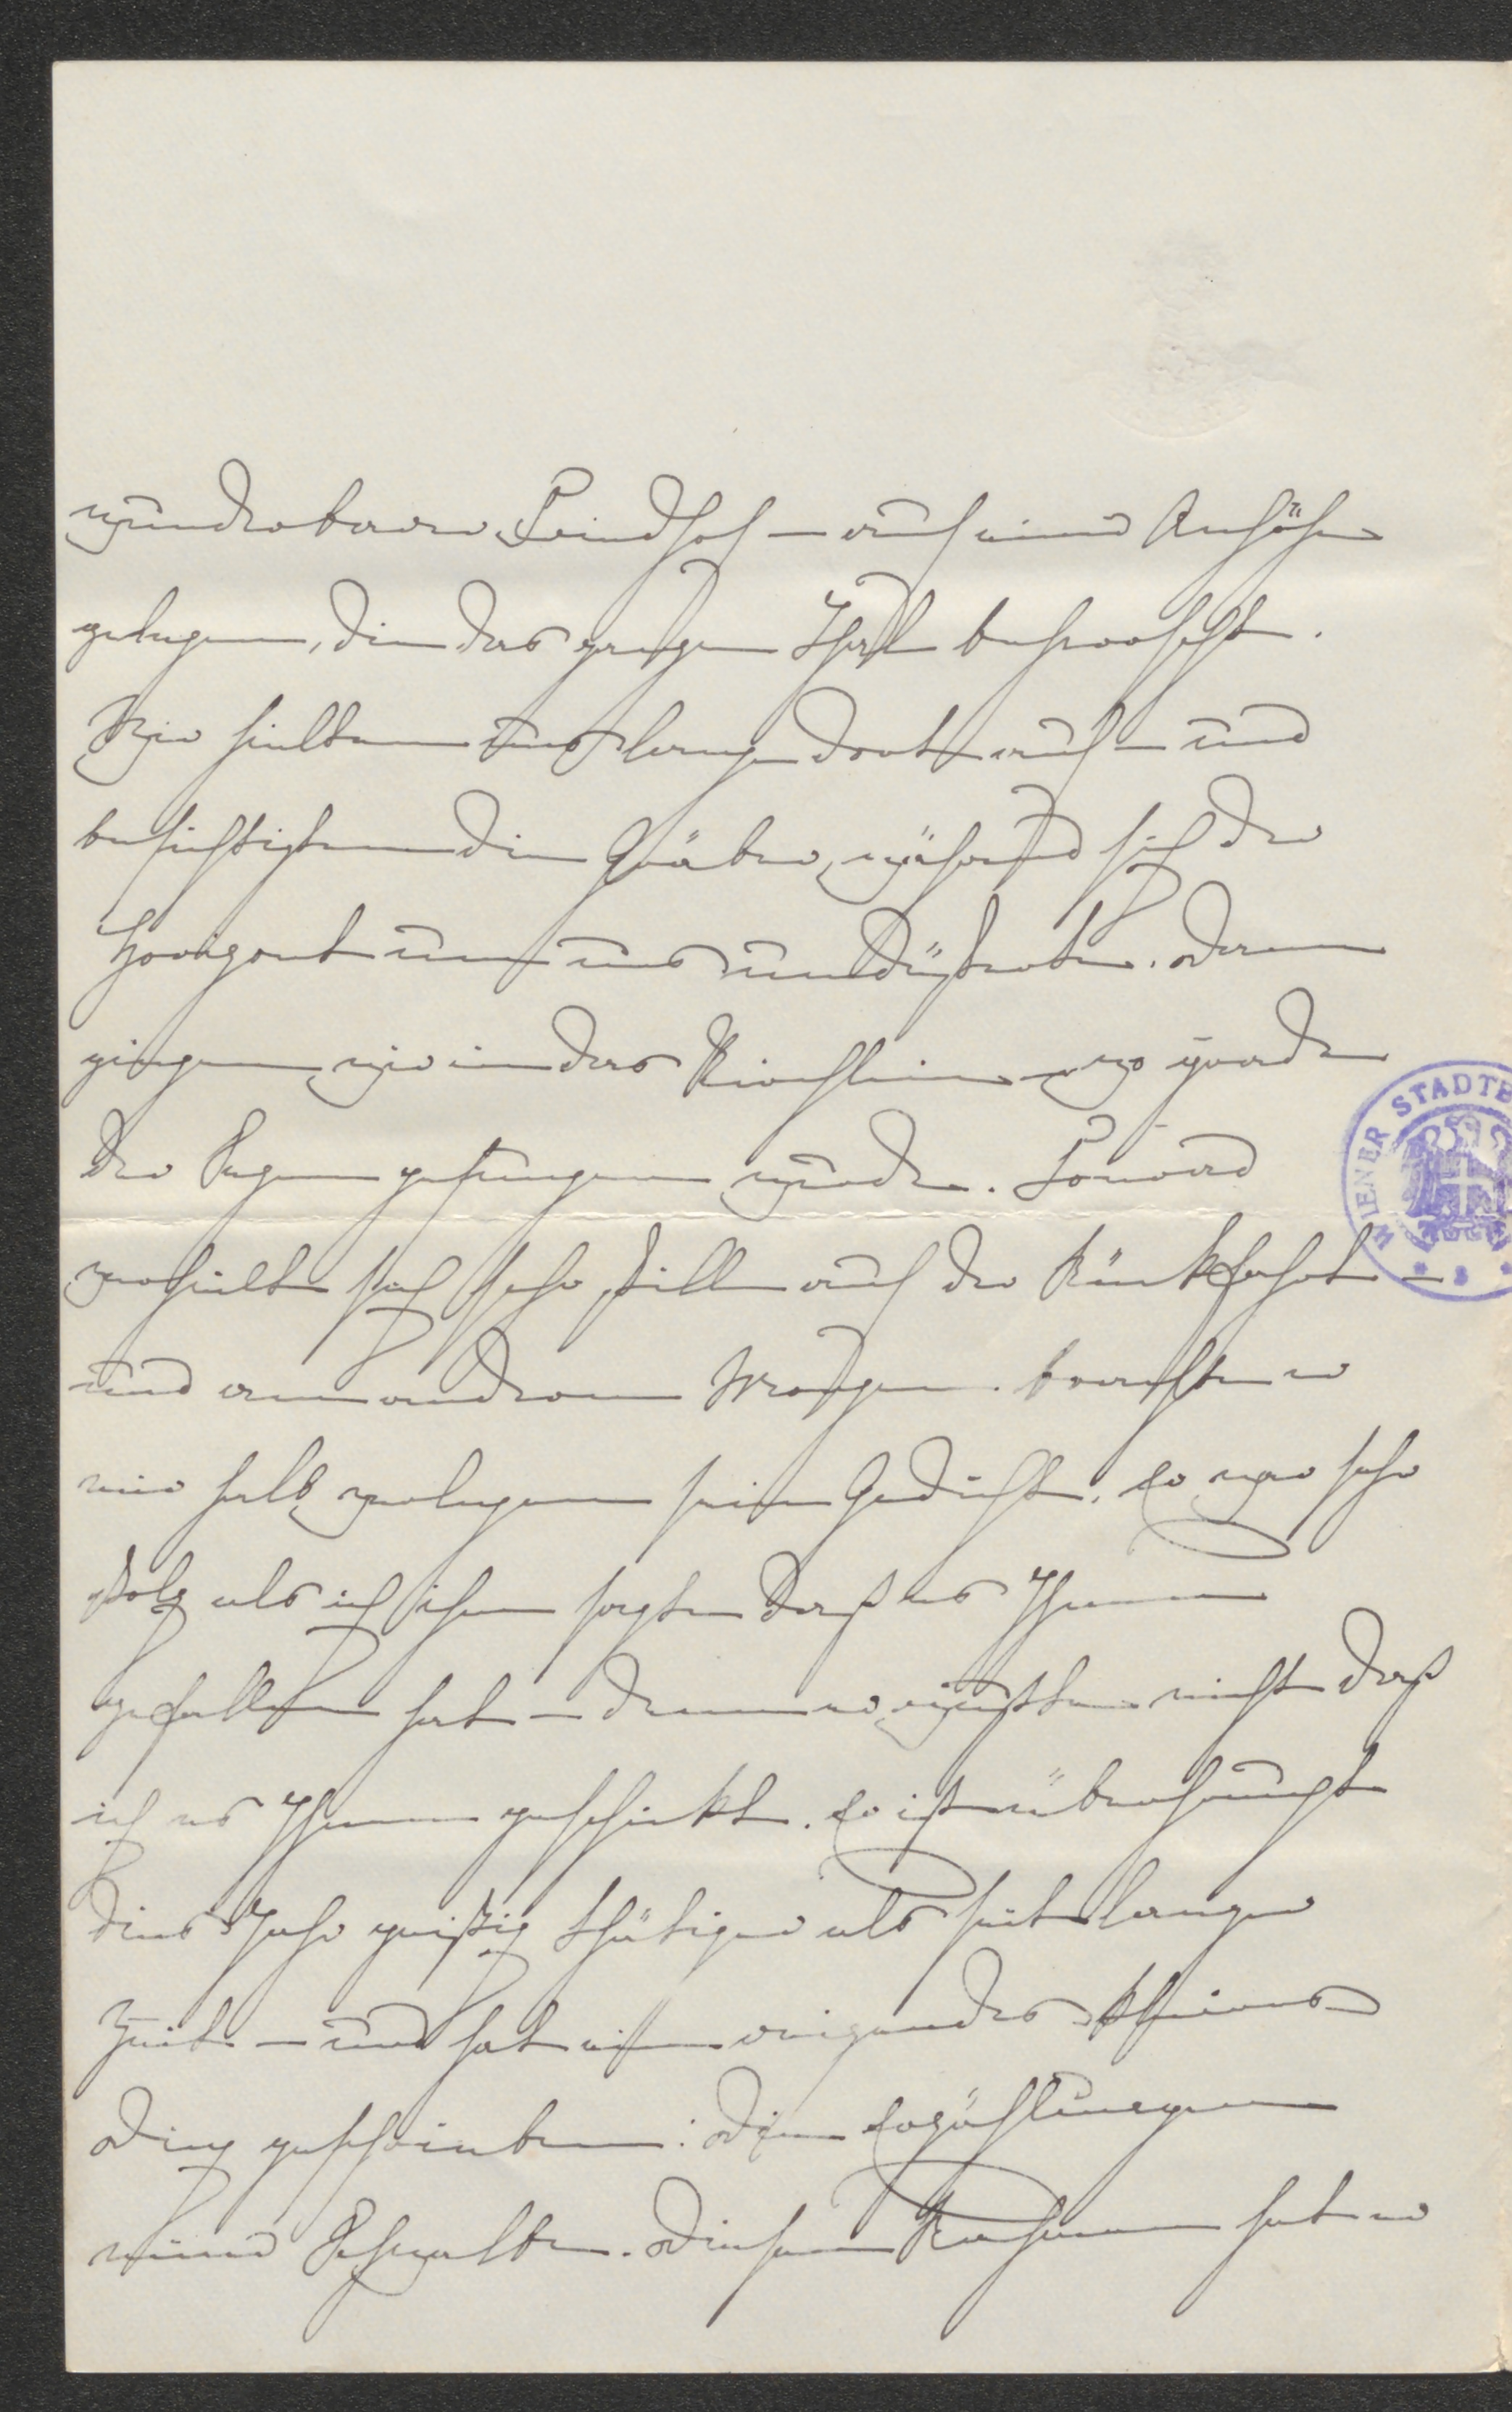 wunderbarer Friedhof – auf einer Anhöhe
gelegen, die das ganze Thal beherrscht.
Wir hielten uns lange dort auf – und
besichtigten die Gräber, während sich der
Horizont um uns umdüsterte. Dann
gingen wir in das Kirchlein wo grade
der Segen gesungen wurde. Edward
verhielt sich sehr still auf der Rückfahrt –
und am andern Morgen brachte er
mir halb verlegen sein Gedicht. Er war sehr
stolz als ich ihm sagte daß es Ihnen
gefallen hat – denn er wußte nicht daß
ich es Ihnen geschickt. Er ist überhaupt
dies Jahr geistig thätiger als seit langer
Zeit – und hat ein reizendes kleines
Ding geschrieben: Die Erzählungen
einer Schwalbe. Diesen Rahmen hat er
WIENER STADTB